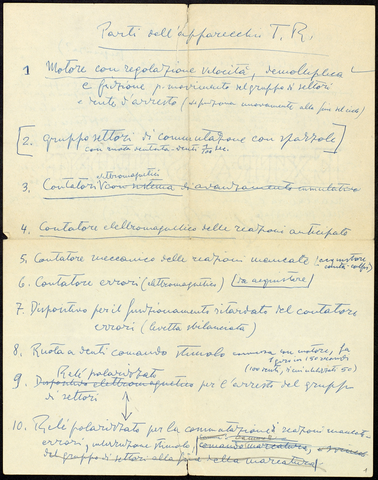 Parti dell'apparecchio T. R.
1 Motore con regolazione velocità, demoltiplica
e frizione p. movimento del gruppo di settori
e dente d'arresto
[2. gruppo settori di commutazione con spazzole]
con ruota dentata denti
elettromagnetici
3. Contatori con sistema di avanzamento
4. Contatore elettromagnetico delle reazioni anticipate
5. Contatore meccanico delle reazioni mancate (acquistare
conta-colpi)
6. Contatore errori (elettromagnetico) [da acquistare]
7. Dispositivo per il funzionamento ritardato del contatore
errori (levetta sbilanciata)
8. Ruota a denti comando stimolo con motore, fa
Relè polarizzato
9. Dispositivo elettromagnetico per l'arresto del gruppo
di settori
10. Relè polarizzato per la commutazione reazioni mancate-
errori, interruzione stimolo, comando marcatura,
del gruppo di settori alla fine della marcatura